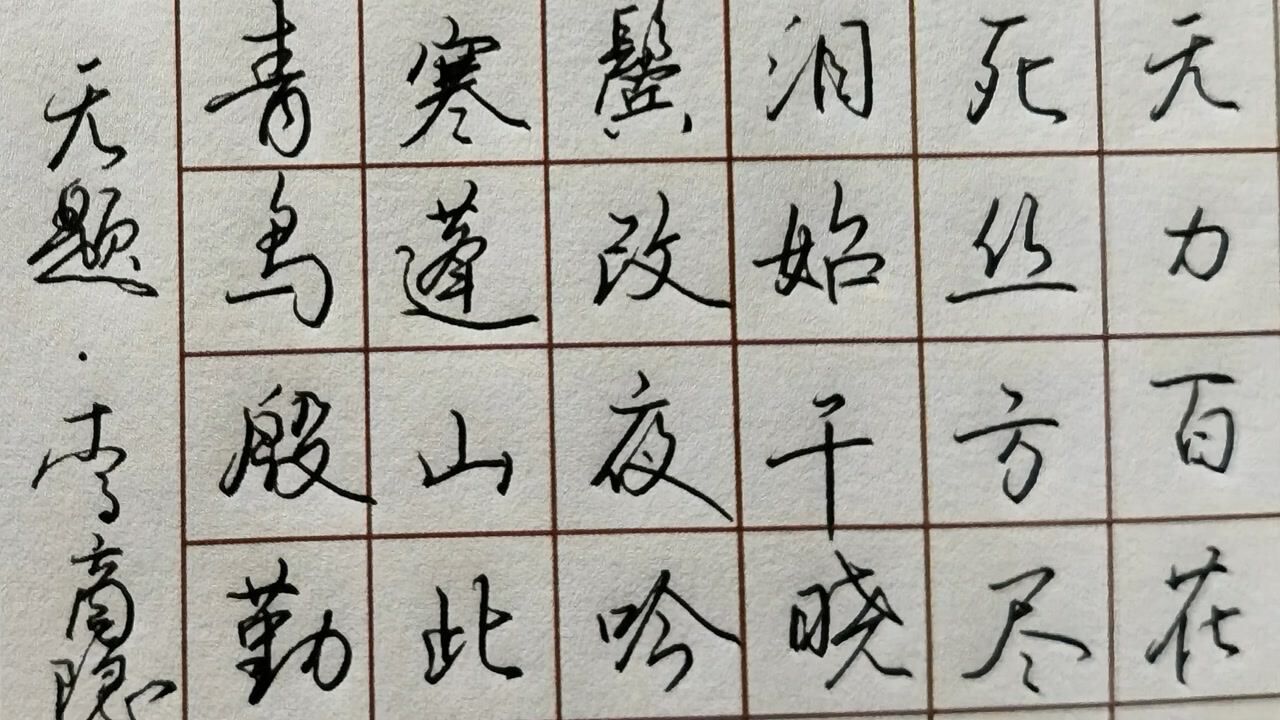 无力百花
死丝方尽
泪始干晓
鬓改夜吟
寒蓬山此
青鸟殷勤
无题·李商隐